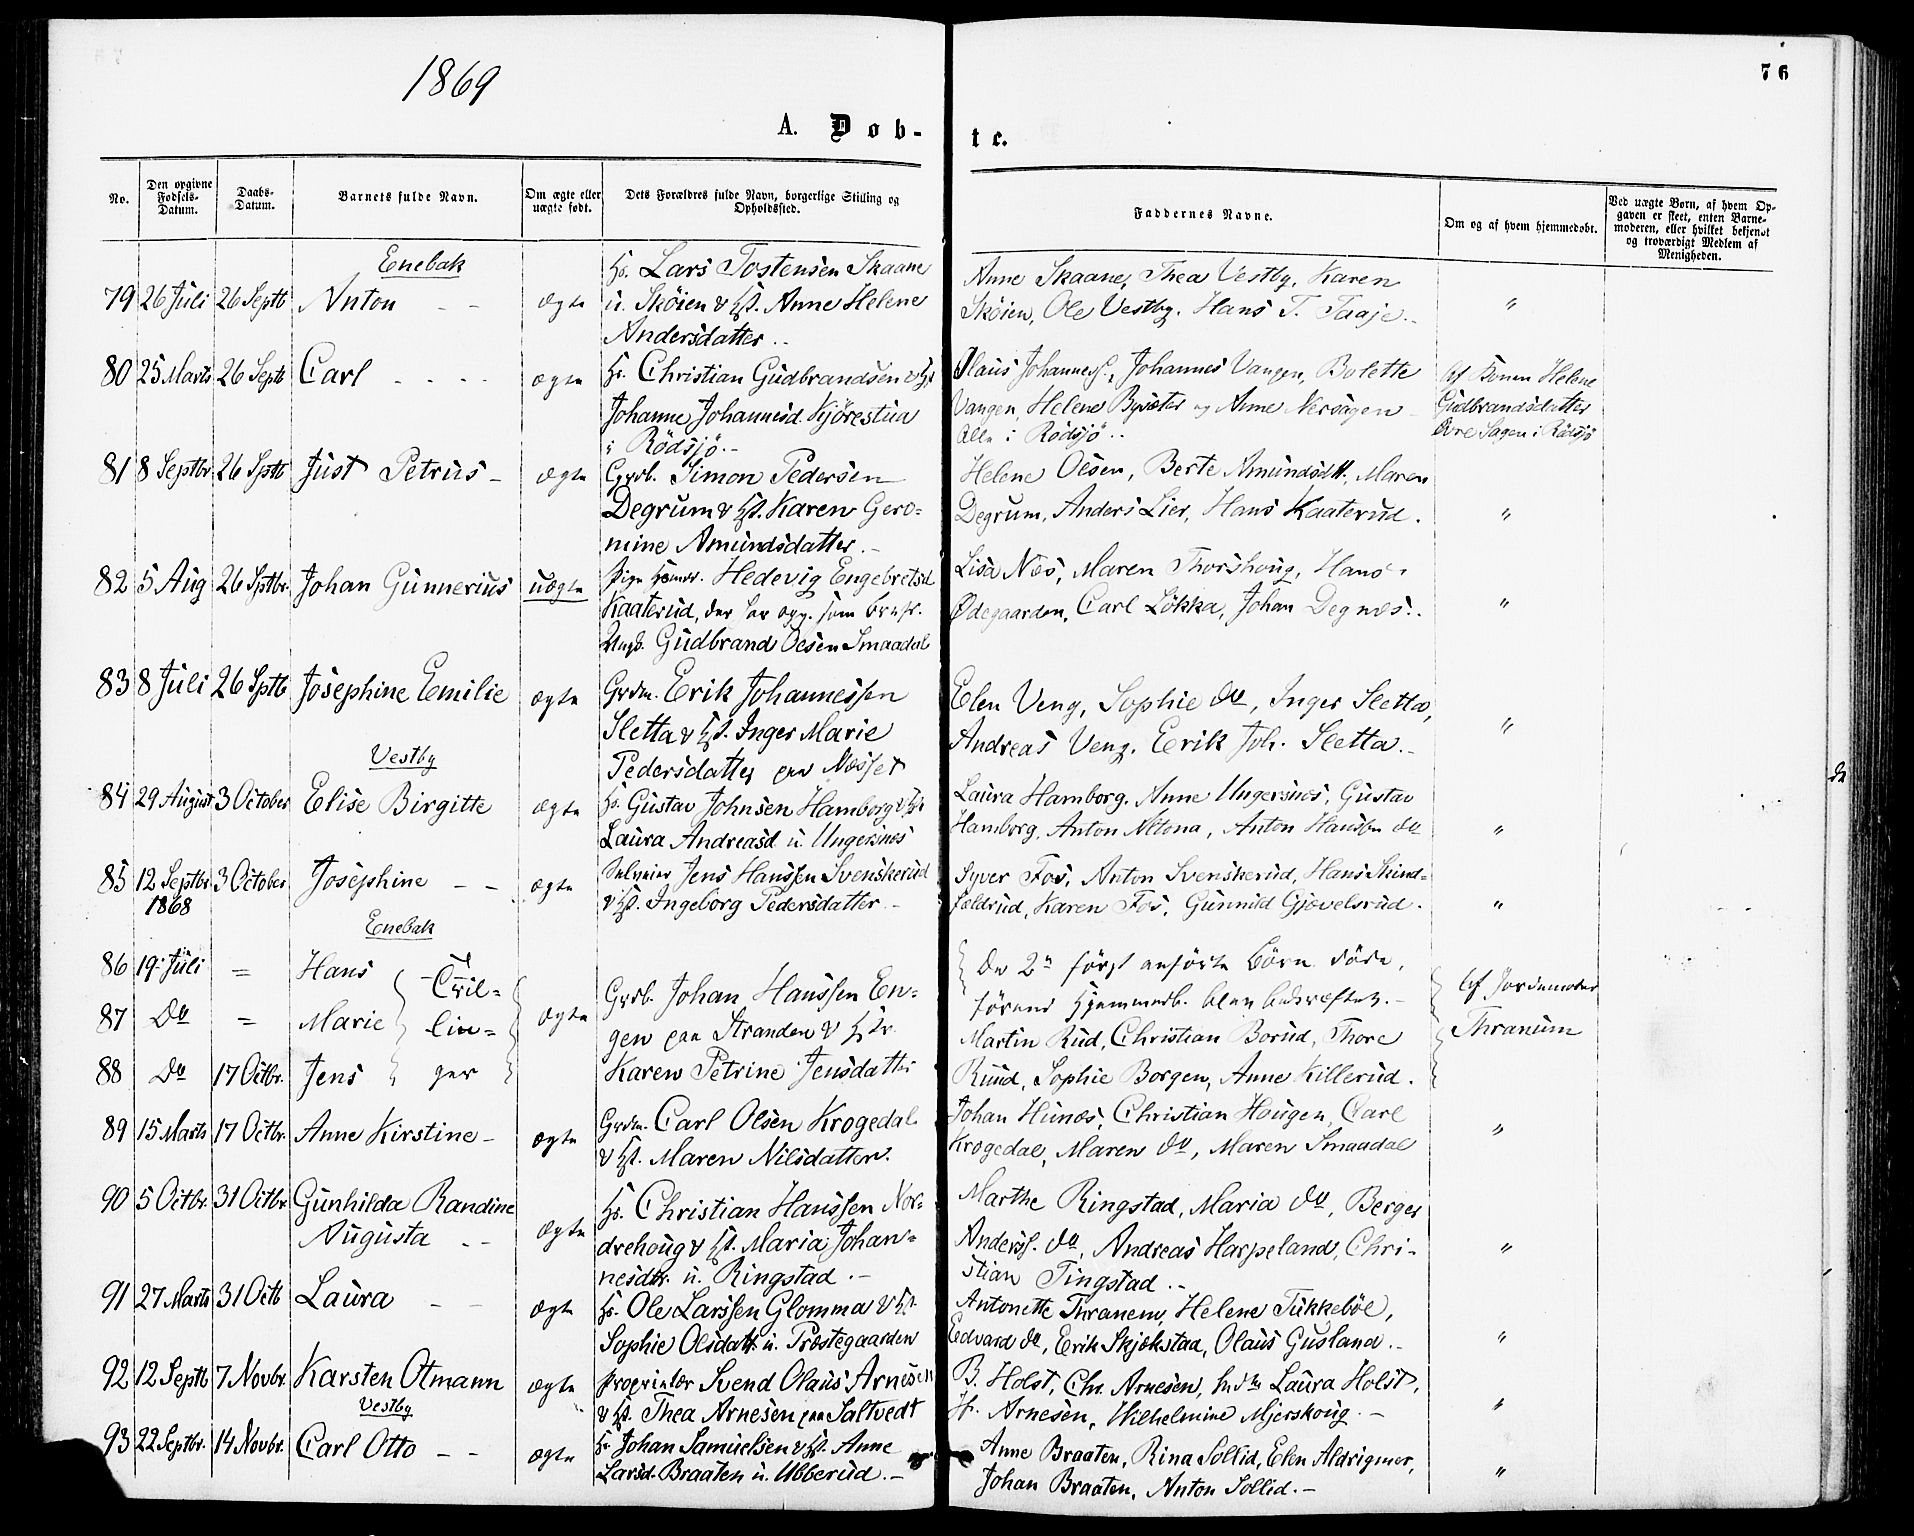 1869
76
A. Døb-
te.
No.
Den opgivne Fødsels-Datum.
Daabs-Datum.
Barnets fulde Navn.
Om ægte eller uægte født.
Dets Forældres fulde Navn, borgerlige Stilling og Opholdssted.
Faddernes Navne.
Om og af hvem hjemmedøbt.
Ved uægte Børn, af hvem Op-
gaven er skeet, enten Barne-
moderen, eller hvilket bekjendt
og troværdigt Medlem af
Menigheden.
Enebak
79 26 Juli 26 Septb Anton - - ægte
Hs. Lars Tostensen Skaane
u. Skøien & Hst. Anne Helene
Andersdatter ..
Anne Skaane, Thea Vestby, Karen
Skøien, Ole Vestby. Hans T. Taaje. "
80 25 Marts 26 Septb Carl - - - - ægte
Hs. Christian Gudbrandsen & Hst
Johanne Johannesd. Kjørestua
i Rødsjø.-
Olaus Johannes., Johannes Vangen, Bolette
Vangen, Helene Bysæter og Anne Nersagen
Alle i Rødsjø..
Af Konen Helene
Gudbrandsdatter
Øvre Sagen i Rødsjø
81 8 Septbr. 26 Sptb Just Petrus - ægte
Grdb. Simon Pedersen
Degrum & Hst. Karen Gero=
nine Amundsdatter.-
Helene Olsen, Berte Amundsdtt., Maren
Degrum, Anders Lier, Hans Kaaterud. "
82 5 Aug 26 Sptbr. Johan Gunnerius uægte
Pige Hedevig Engebretsd
Kaaterud, der har opg. som Brnfr.
Ungk. Gudbrand Olsen Smaadal
Lisa Næs, Maren Thorshoug, Hans
Ødegaarden, Carl Løkka, Johan Degnæs.. "
83 8 Juli 26 Sptb Josephine Emilie ægte
Grdm. Erik Johannessen
Sletta & Hst. Inger Marie
Pedersdatter paa Næsset
Elen Veng, Sophie do, Inger Sletta,
Andreas Veng. Erik Joh. Sletta.- "
Vestby
84 29 August 3 October Elise Birgitte ægte
Hs. Gustav Johnsen Hamborg & Hst
Laura Andreasd u. Ungersnes
Laura Hamborg. Anne Ungersnes, Gustav
Hamborg, Anton Altona, Anton Hansen do "
85 12 Septbr. 3 October Josephine - - ægte
1868
Selveier Jens Hanssen Svenskerud
& Hst. Ingeborg Pedersdatter -
Syver Fos, Anton Svenskerud, Hans Skind=
fældrud, Karen Fos, Gunnild Gjøvelsrud. "
Enebak
86 19 Juli = Hans
87 Do = Marie
88 Do 17 Octbr. Jens
Tril=
lin=
ger
ægte
Grdb. Johan Hanssen En=
gen paa Stranden & Hstr.
Karen Petrine Jensdatter
De 2de først anførte Børn døde,
førend Hjemmedb. blev bekræftet.-
Martin Rud, Christian Borud, Thore
Ruud, Sophie Borgen, Anne Killerud.
Af Jordemoder
Thranum
89 15 Marts 17 Octbr. Anne Kirstine - ægte
Grdm. Carl Olsen Krogedal
& Hst. Maren Nilsdatter.
Johan Hunæs, Christian Hougen, Carl
Krogedal, Maren do, Maren Smaadal "
90 5 Octbr. 31 Octbr. Gunhilda Randine
Augusta - - ægte
Hs. Christian Hanssen Nor-
drehoug & Hst. Maria Johan=
nesdtr. u. Ringstad.-
Marthe Ringstad, Maria do, Berger
Anderss. do, Andreas Harpeland, Chri-
stian Tingstad.- "
91 27 Marts 31 Octb Laura - - ægte
Hs. Ole Larssen Glomma & Hst.
Sophie Olsdatt u. Præstegaarden
Antonette Thranem, Helene Tukkebøl,
Edvard do, Erik Skjækstad, Olaus Gusland.- "
92 12 Septb 7 Novbr. Karsten Otmann ægte
Proprietær Svend Olaus Arnesen
& Hst. Thea Arnesen paa Saltvedt
B. Holst, Chr. Arnesen, Laura Holst,
H. Arnesen, Wilhelmine Mjerskoug.- "
Vestby
93 22 Septbr. 14 Novbr. Carl Otto - - ægte
Hs. Johan Samuelsen & Hst. Anne
Larsd. Braaten u. Ubberud.-
Anne Braaten, Rina Sollid, Elen Aldrigmer,
Johan Braaten, Anton Sollid.- "